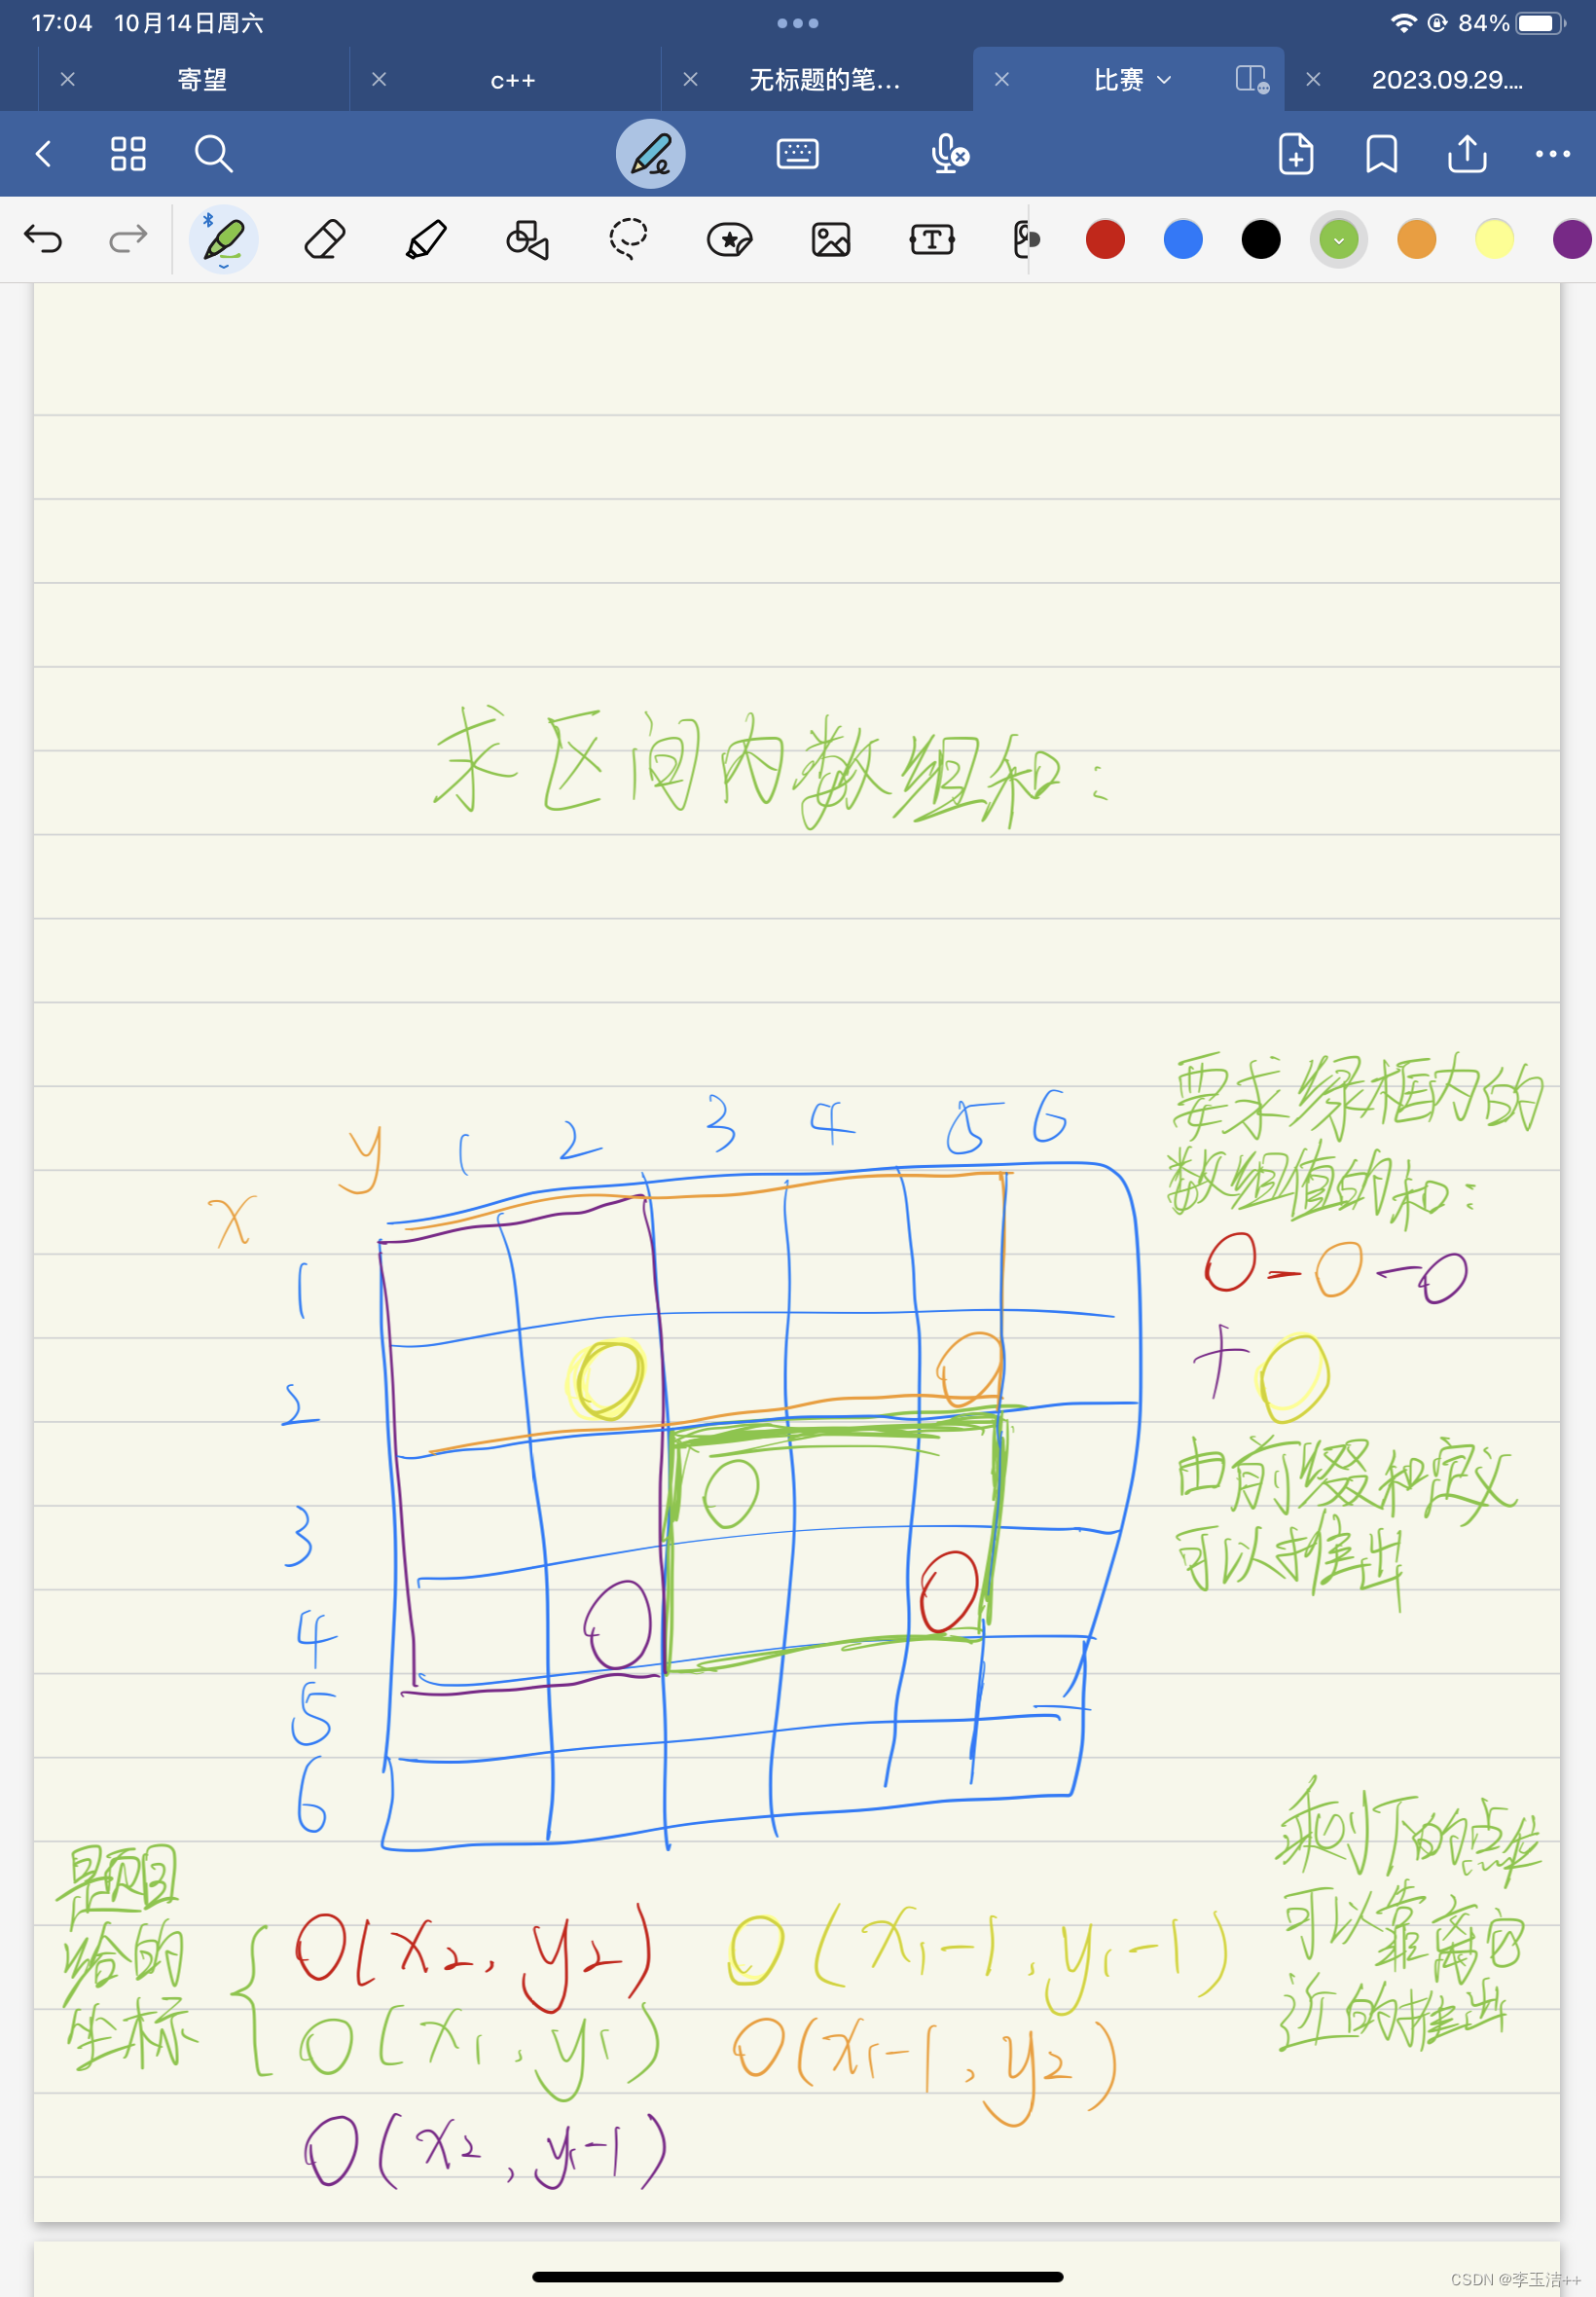 17:04 10月14日周六 84%
寄望 c++ 无标题的笔... 比赛 2023.09.29....
求区间内数组和:
要求绿框内的
数组值的和:
O - O - O
+ O
由前缀和定义
可以推出
y 1 2 3 4 5 6
x
1
2
3
4
5
6
剩下的点坐
可以靠离它
近的推出
题目
给的
坐标
O(x2, y2) O(x1-1, y1-1)
O(x1, y1) O(x1-1, y2)
O(x2, y1-1)
CSDN @李玉洁++